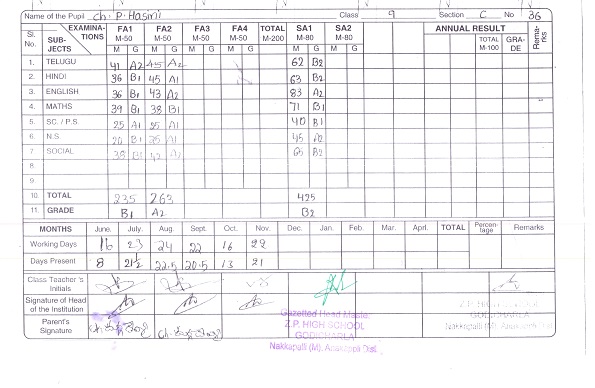 Name of the Pupil Ch. P. Hasini Class 9 Section C No 36
Sl. No. SUBJECTS EXAMINATIONS FA1 M-50 FA2 M-50 FA3 M-50 FA4 M-50 TOTAL M-200 SA1 M-80 SA2 M-80 ANNUAL RESULT Remarks
M G M G M G M G M G M G TOTAL M-100 GRADE
1. TELUGU 41 A2 45 A2 62 B2
2. HINDI 36 B1 45 A1 63 B2
3. ENGLISH 36 B1 43 A2 83 A2
4. MATHS 39 B1 38 B1 71 B1
5. SC. / P.S. 25 A1 25 A1 40 B1
6. N.S. 20 B1 25 A1 45 A2
7 SOCIAL 38 B1 42 A2 65 B2
8.
9.
10. TOTAL 235 263 425
11. GRADE B1 A2 B2
MONTHS June. July. Aug. Sept. Oct. Nov. Dec. Jan. Feb. Mar. Aprl. TOTAL Percentage Remarks
Working Days 16 23 24 22 16 22
Days Present 8 21½ 22.5 20.5 13 21
Class Teacher's Initials
Signature of Head of the Institution
Parent's Signature
Gazetted Head Master
Z.P. HIGH SCHOOL
GODICHARLA
Nakkapalli (M). Anakapalli Dist.
Z.P. HIGH SCHOOL
GODICHARLA
Nakkapalli (M). Anakapalli Dist.